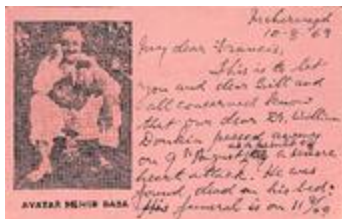 Meherazad
10-8-69
My dear Francis,
This is to let
you and dear Bill and
all concerned know
that our dear Dr. William
Donkin passed away
on 9th August, as a result of a severe
heart attack. He was
found dead on his bed.
His funeral is on 11/8/69
AVATAR MEHER BABA